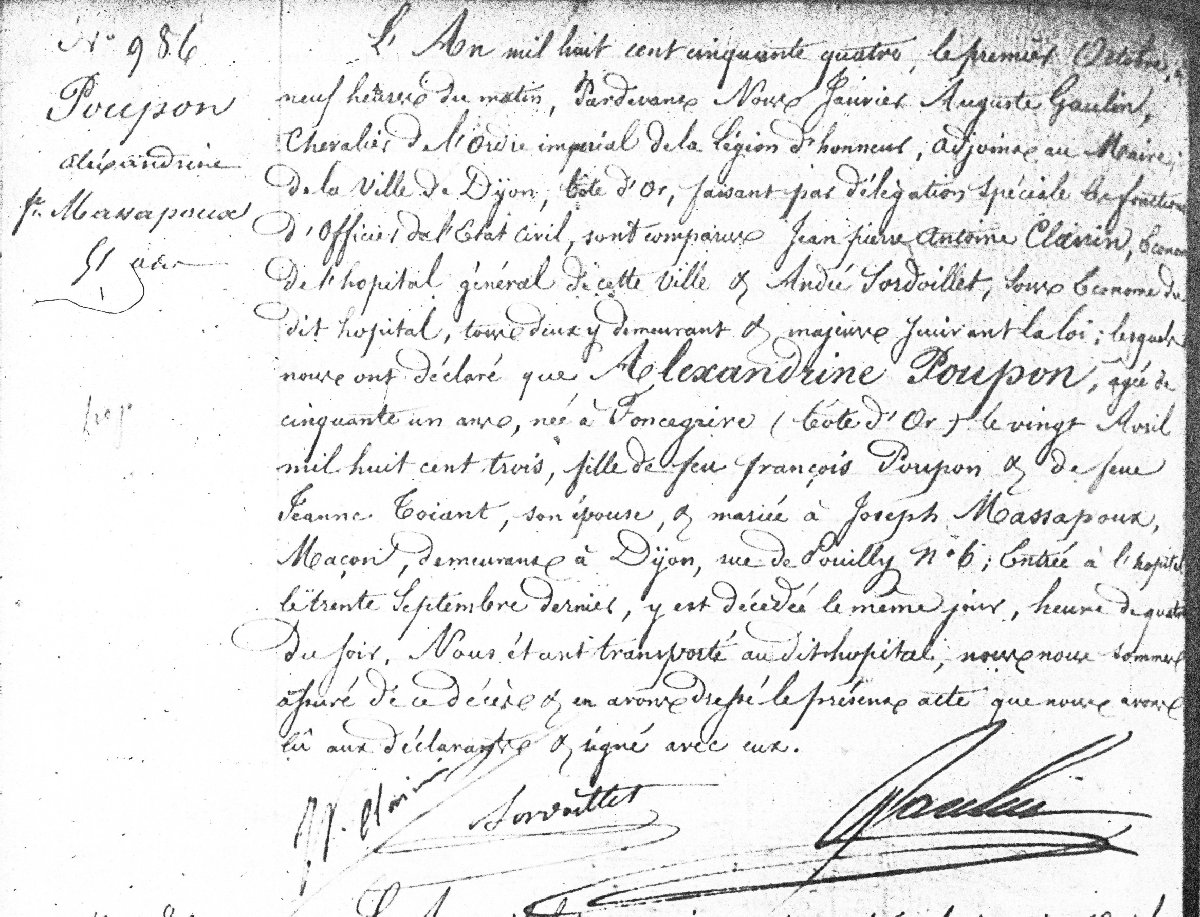 N° 986
Poupon
alexandrine
fe. Massapoux
51 ans
L'An mil huit cent cinquante quatre, le premier Octobre, à
neuf heures du matin, Pardevant Nous Janvier Auguste Gaulin,
Chevalier de l'Ordre impérial de la Légion d'honneur, adjoint au Maire
de la Ville de Dijon, Côte d'Or, faisant par délégation spéciale les fonctions
d'Officier de l'Etat Civil, sont comparus Jean pierre antoine Clarin, Econome
de l'hopital général de cette ville & André Sordoillet, Sous Econome du
dit hopital, tous deux y demeurant & majeurs suivant la loi ; lesquels
nous ont déclaré que Alexandrine Poupon, agée de
cinquante un ans, née à Foncegrive (Côte d'Or) le vingt Avril
mil huit cent trois, fille de feu françois Poupon & de feue
Jeanne Toiant, son épouse, & mariée à Joseph Massapoux,
Maçon, demeurant à Dijon, rue de Pouilly n° 6 ; Entrée à l'hopital
le trente Septembre dernier, y est décédée le même jour, heure de quatre
du soir. Nous étant transporté au dit hôpital, nous nous sommes
assuré de ce décès & en avons dressé le présent acte que nous avons
lû aux déclarants & signé avec eux.
J.P. Clarin
Sordoillet
Gaulin